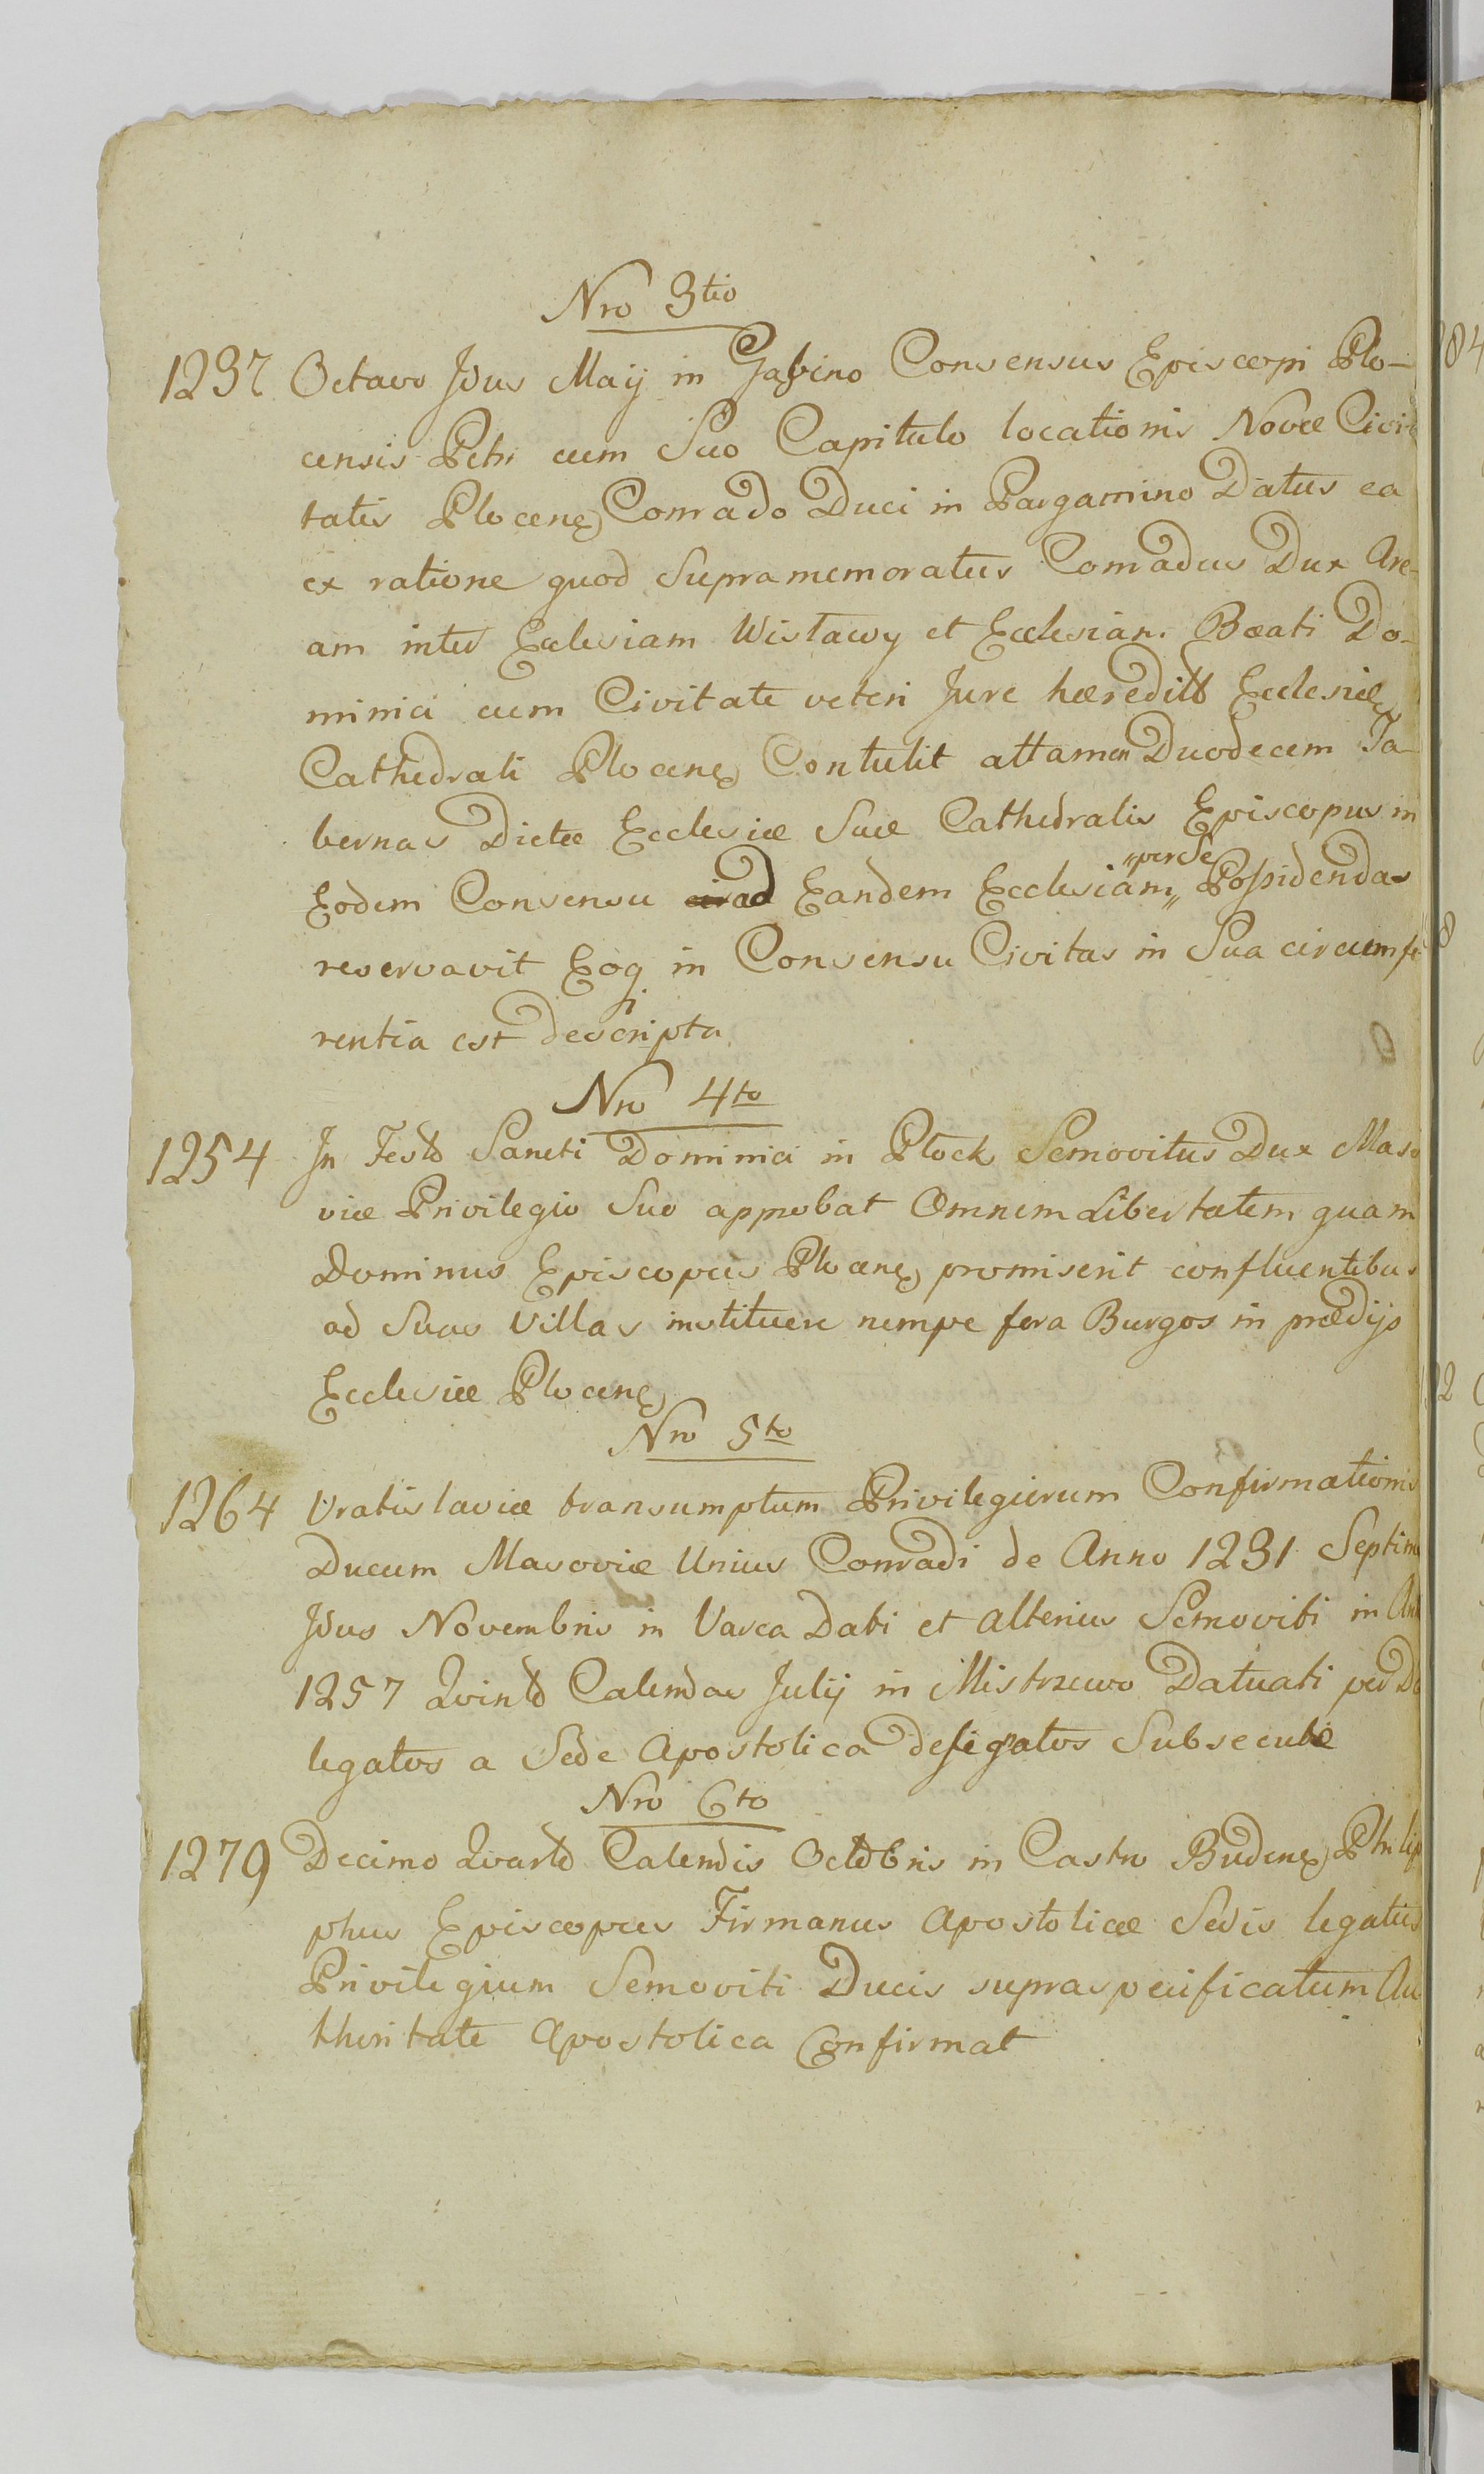 Nro 3tio
1237 Octavo Jdus Maij in Gabino Consensus Episcopi Plo-
censis Petri cum Suo Capitulo locationis Novæ Civi
tatis Plocenę Conrado Duci in Pargamino Datus ea
ex ratione quod Supramemoratus Conradus Dux Are-
am inter Ecclesiam Wisławy et Ecclesiam Beati Do-
minici cum Civitate veteri Jure hæredit̃ Ecclesiæ
Cathedrali Plocenę Contulit attamen Duodecem Ta-
bernas Dictæ Ecclesiæ Suæ Cathedralis Episcopus in
Eodem Consensu ad Eandem Ecclesiam „per Se Possidendas
reservavit Eoq in Consensu Civitas in Sua circumfe
rentia est descripta
Nro 4to
1254 In Festo Sancti Dominici in Plock Semovitus Dux Maso
viæ Privilegio Suo approbat Omnem Libertatem quam
Dominus Episcopus Plocenę promiserit confluentibus
ad Suas Villas instituere nempe fora Burgos in prædijs
Ecclesiæ Plocenę
Nro 5to
1264 Vratislaviæ transumptum Privilegiorum Confirmationis
Ducum Masoviæ Unius Conradi de Anno 1231 Septim
Jdus Novembris in Varca Dati et alterius Semoviti in An
1257 Qvinto Calendas Julij in Mistrzewo Datuati per De
legatos a Sede Apostolica desigatos Subsecutæ
Nro 6to
1279 Decimo Qvarto Calendis Octobris in Castro Budenę Philip
phus Episcopus Firmanus Apostolicæ Sedis legatus
Privilegium Semoviti Ducis supraspecificatum Au
thoritate Apostolica Confirmat